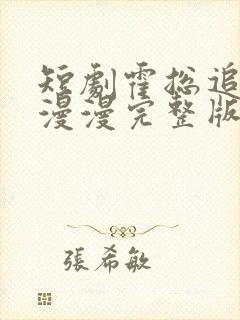 短劇霍總追
漫漫完整版
張希敏